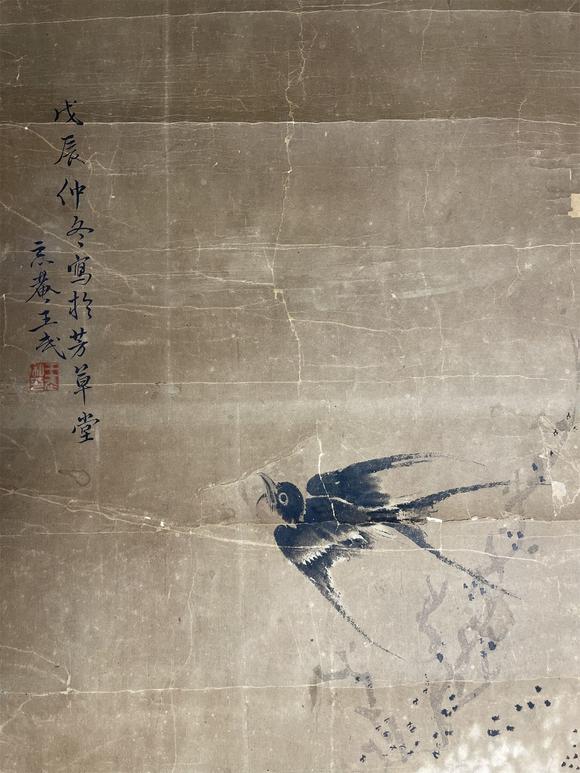 戊辰仲冬寫於芳草堂
忘菴王武